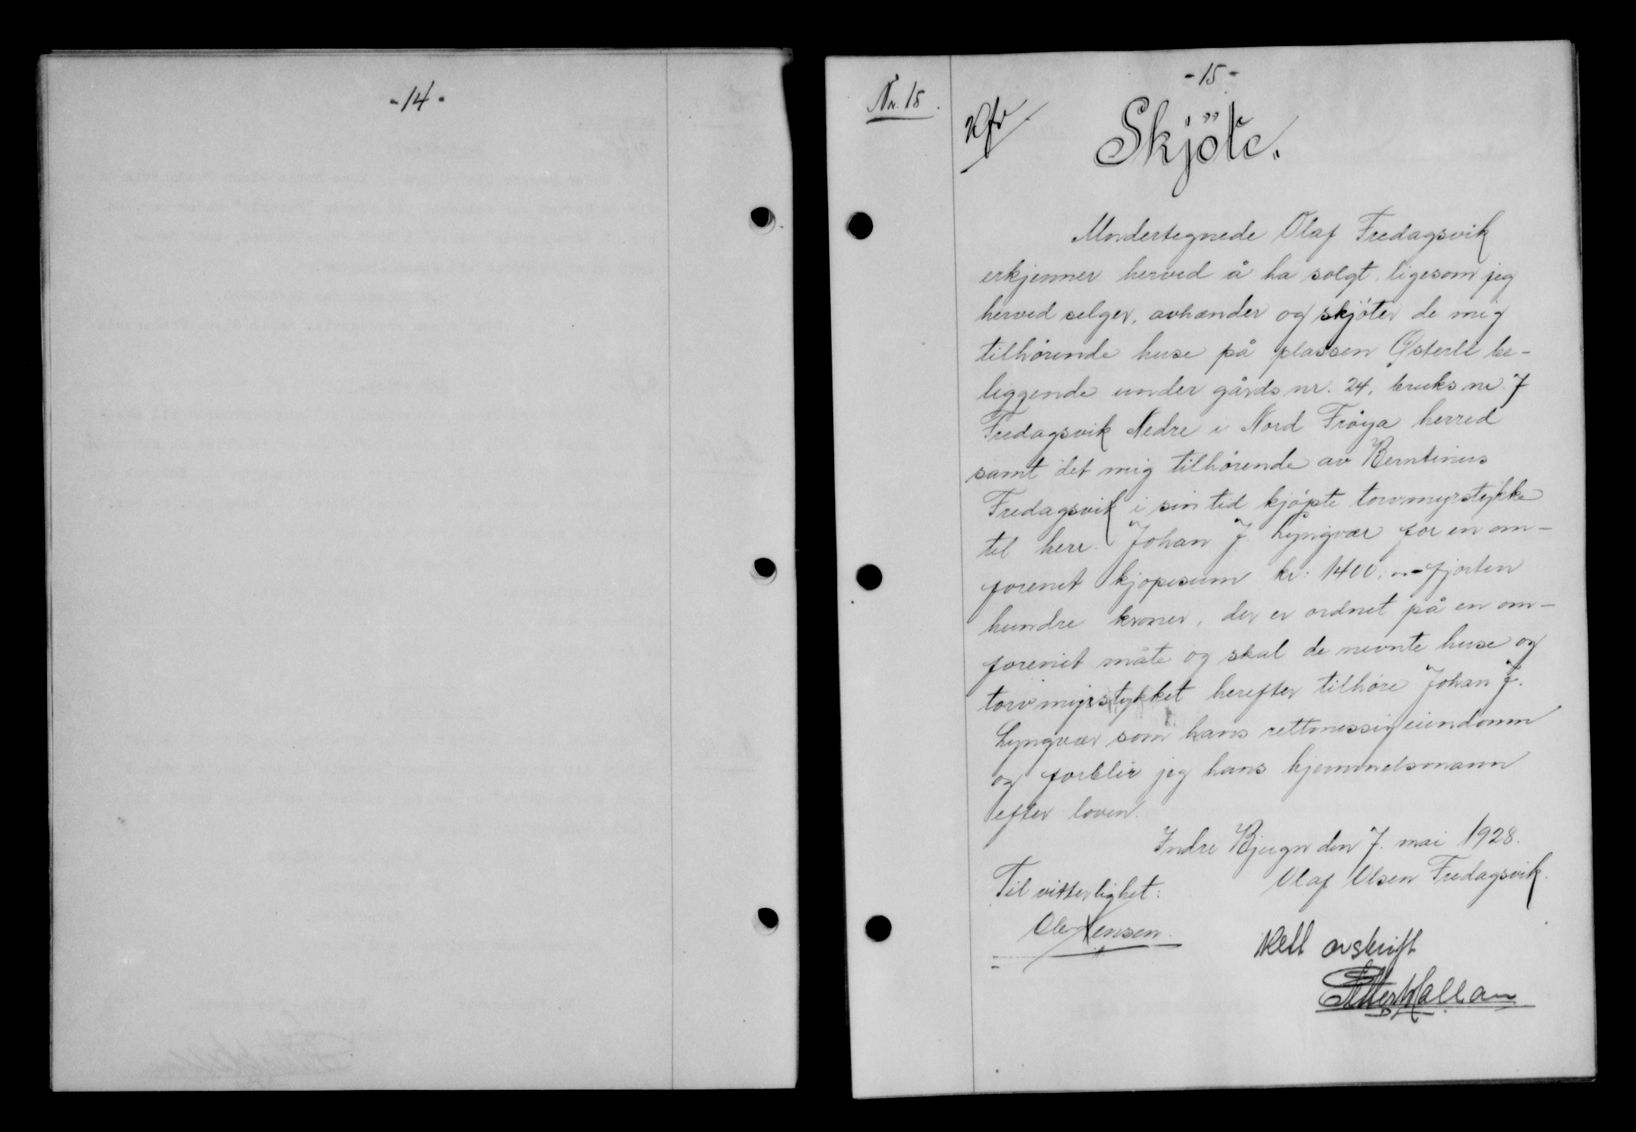 -14-
-15-
Nr. 15.
Skjöte.
Undertegnede Olaf Fredagsvik
erkjenner herved å ha solgt, ligesom jeg
herved selger, avhænder og skjöter de mig
tilhørende huse på plassen Østerli be-
liggende under gårds nr. 24, bruks nr 7
Fredagsvik Nedre i Nord Fröya herred
samt det mig tilhörende av Berntinus
Fredagsvik i sin tid kjöpte torvmyrstykke
til herr. Johan J. Lyngvær for en om-
forenet kjöpesum kr: 1400,- fjorten
hundre kroner, der er ordnet på en om-
forenet måte og skal de nevnte huse og
torvmyrstykket herefter tilhøre Johan J.
Lyngvær som hans rettmessig eiendomm
og forblir jeg hans hjemmelsmann
efter loven.
Indre Bjugn den 7. mai 1928.
Olaf Olsen Fredagsvik.
Til vitterlighet:
Ole Jensen.
Rett avskrift
Petter Hallan